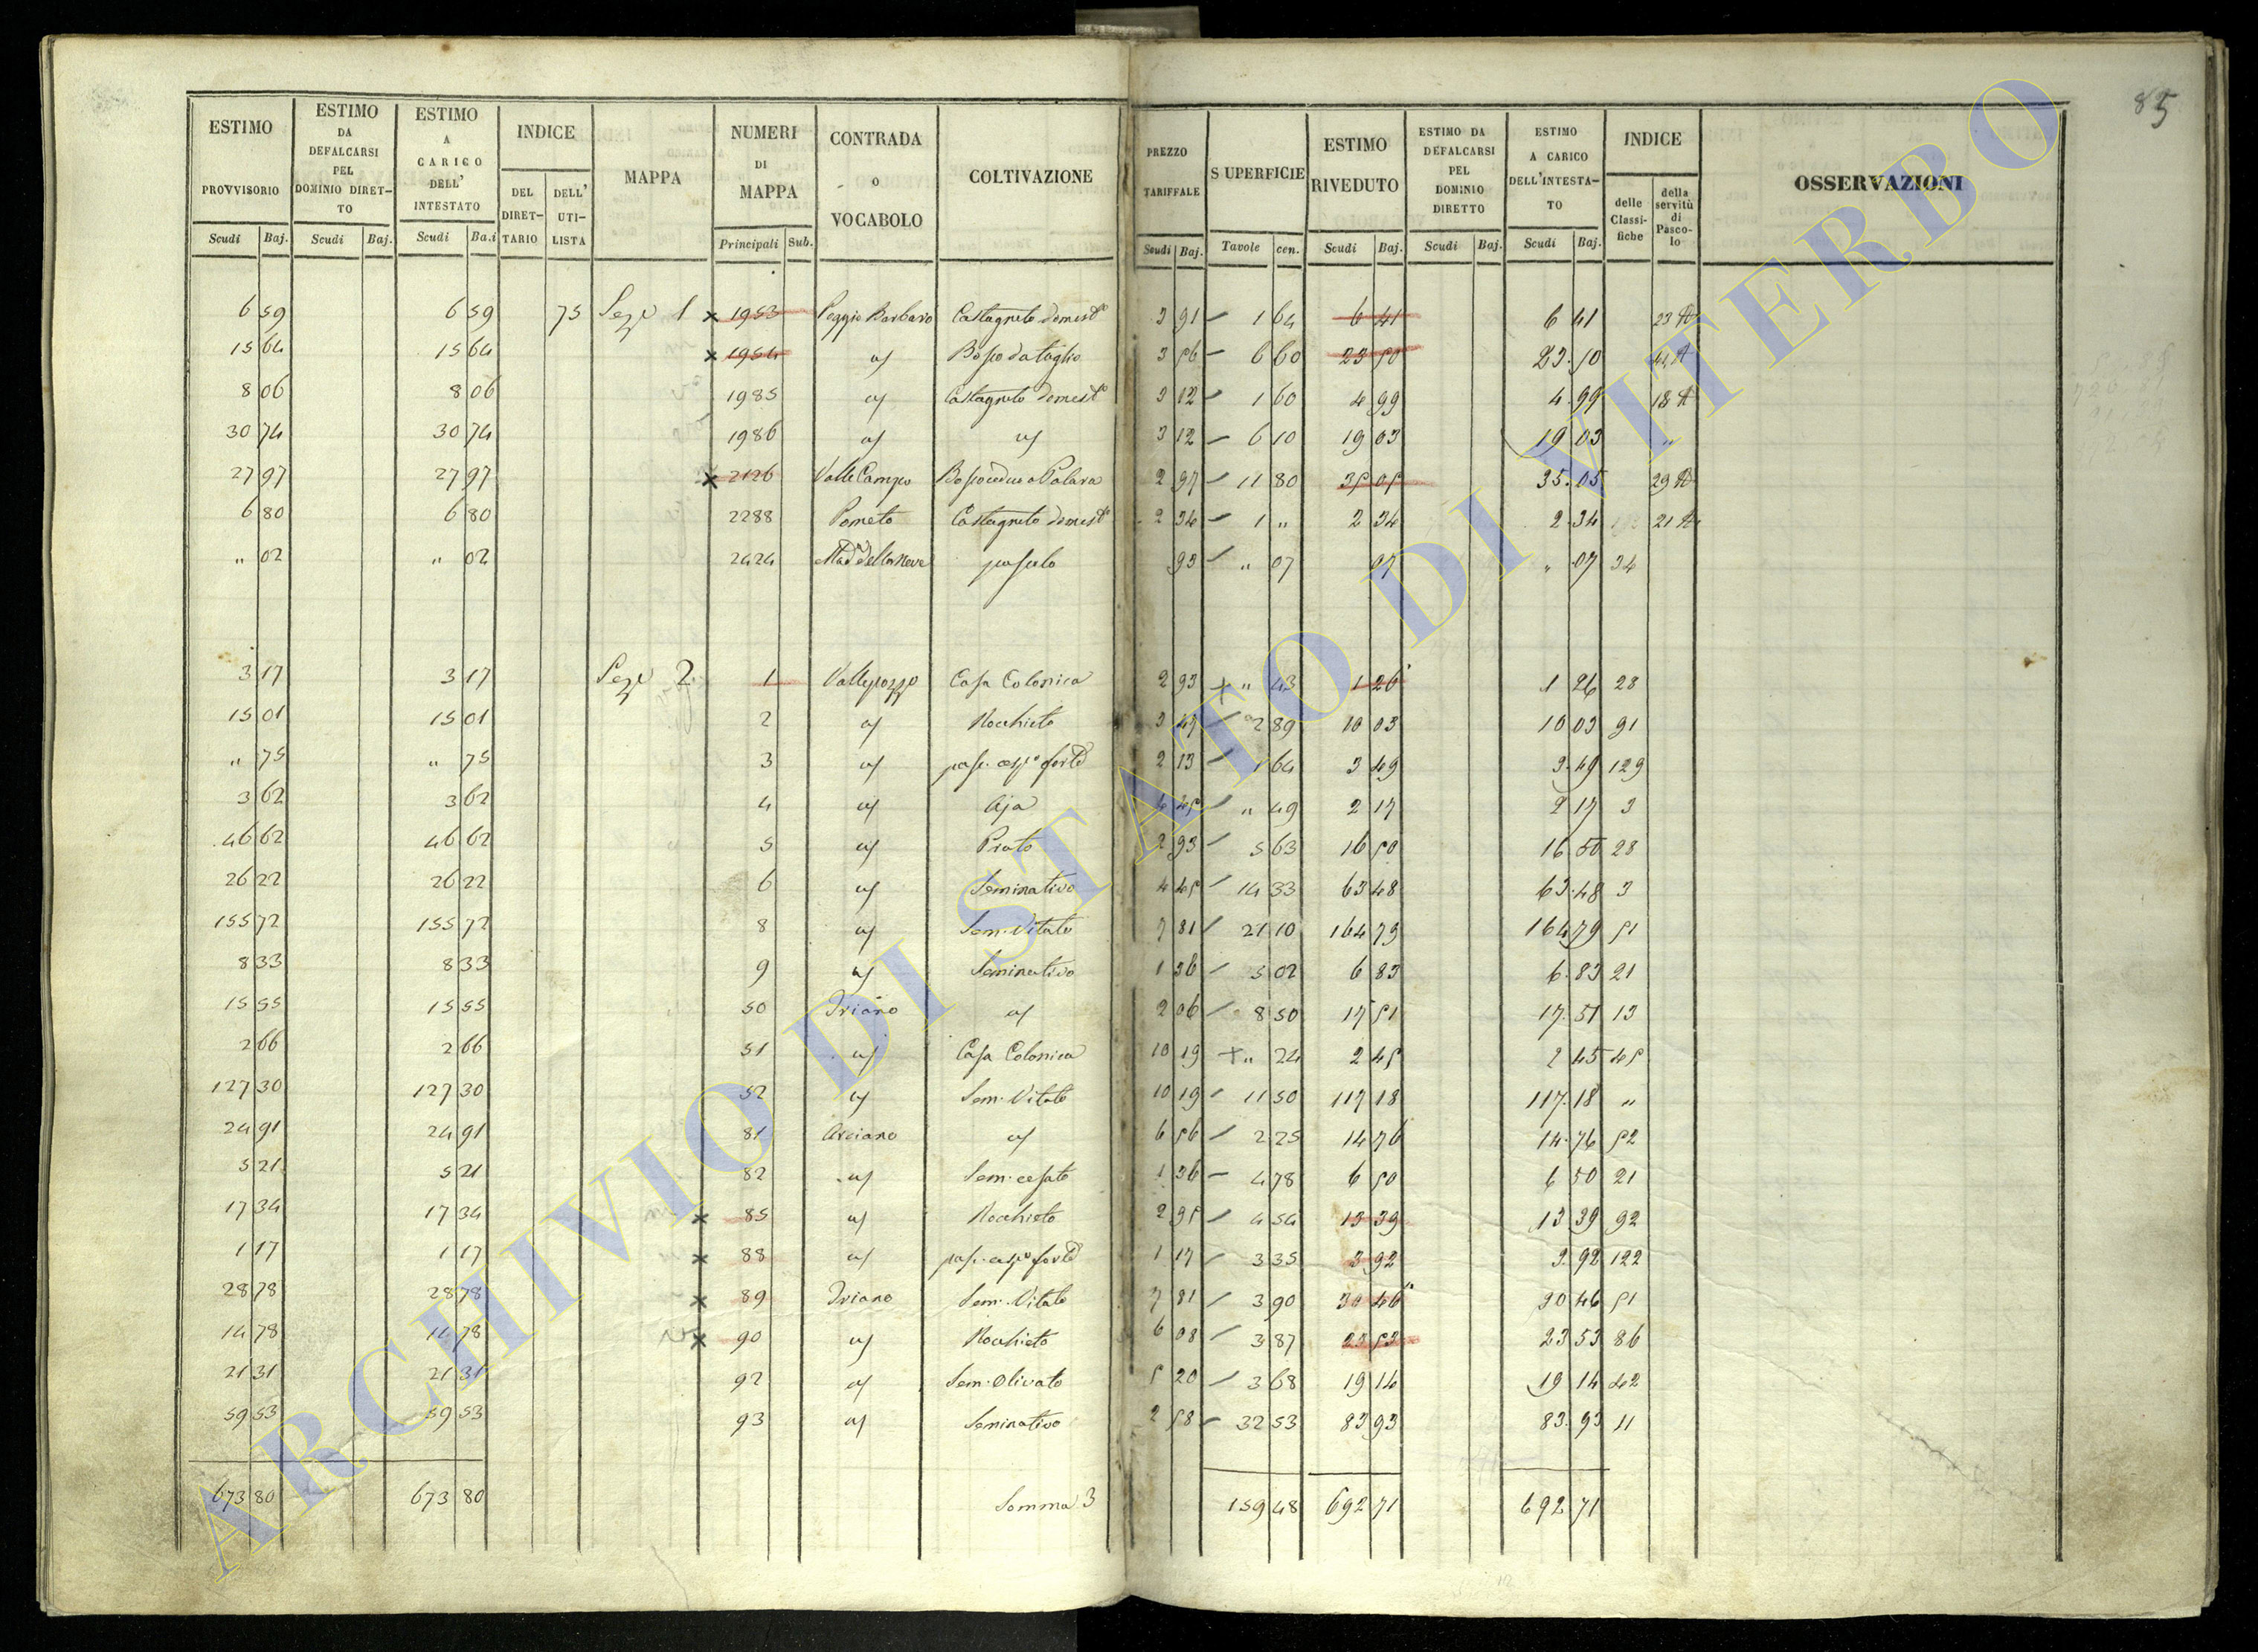 85
ESTIMO PROVVISORIO Scudi Baj. | ESTIMO DA DEFALCARSI PEL DOMINIO DIRETTO Scudi Baj. | ESTIMO A CARICO DELL' INTESTATO Scudi Ba.i | INDICE DEL DIRETTARIO DELL' UTILISTA | MAPPA | NUMERI DI MAPPA Principali Sub. | CONTRADA o VOCABOLO | COLTIVAZIONE | PREZZO TARIFFALE Scudi Baj. | SUPERFICIE Tavole cen. | ESTIMO RIVEDUTO Scudi Baj. | ESTIMO DA DEFALCARSI PEL DOMINIO DIRETTO Scudi Baj. | ESTIMO A CARICO DELL'INTESTATO Scudi Baj. | INDICE delle Classifiche della servitù di Pascolo | OSSERVAZIONI
6 59 6 59 75 Seze 1 x 1953 Poggio Barbaro Castagneto domest° 3 91 1 64 6 41 6 41 23 A
15 64 15 64 x 1954 " Bosco da taglio 3 56 6 60 23 50 23.50
8 06 8 06 1985 " Castagneto domest° 3 12 1 60 4 99 4.99 18 A
30 74 30 74 1986 " " 3 12 6 10 19 03 19 03 "
27 97 27 97 x 2126 Valle Campo 2 97 11 80 35 05 35.05 29 A
6 80 6 80 2288 Pometo Castagneto domest° 2 34 1 " 2 34 2 34 21 A
" 02 " 02 2424 Mad.a della Neve pascolo 93 " 07 07 " 07 34
3 17 3 17 Seze 2 1 Vallepozzo Casa Colonica 2 93 + " 43 1 26 1 26 28
15 01 15 01 2 " Nocchieto 3 47 2 89 10 03 10 03 91
" 75 " 75 3 " pas. cesp° forte 2 13 1 64 3 49 3.49 129
3 62 3 62 4 " Aja 4 45 " 49 2 17 2 17 3
46 62 46 62 5 " Prato 2 93 5 63 16 50 16 50 28
26 22 26 22 6 " Seminativo 4 45 14 33 63 48 63.48 3
155 72 155 72 8 " Sem. Vitato 7 81 21 10 164 79 164 79 51
8 33 8 33 9 " Seminativo 1 36 5 02 6 83 6.83 21
15 55 15 55 50 Iriano " 2 06 8 50 17 51 17.51 13
2 66 2 66 51 " Casa Colonica 10 19 + " 24 2 45 2 45 45
127 30 127 30 52 " Sem. Vitato 10 19 11 50 117 18 117.18 "
24 91 24 91 81 Arciano " 6 56 2 25 14 76 14.76 52
5 21 5 21 82 " Sem. cesato 1 36 4 78 6 50 6 50 21
17 34 17 34 x 85 " Nocchieto 2 95 4 54 13 39 13 39 92
1 17 1 17 x 88 " pas. cesp° forte 1 17 3 35 3 92 3.92 122
28 78 28 78 x 89 Iriano Sem. Vitato 7 81 3 90 30 46 30 46 51
14 78 14 78 x 90 " Nocchieto 6 08 3 87 23 53 23 53 86
21 31 21 31 92 " Sem. Olivato 5 20 3 68 19 14 19 14 42
59 53 59 53 93 " Seminativo 2 58 32 53 83 93 83.93 11
673 80 673 80 Somma 3 159 48 692 71 692 71
ARCHIVIO DI STATO DI VITERBO